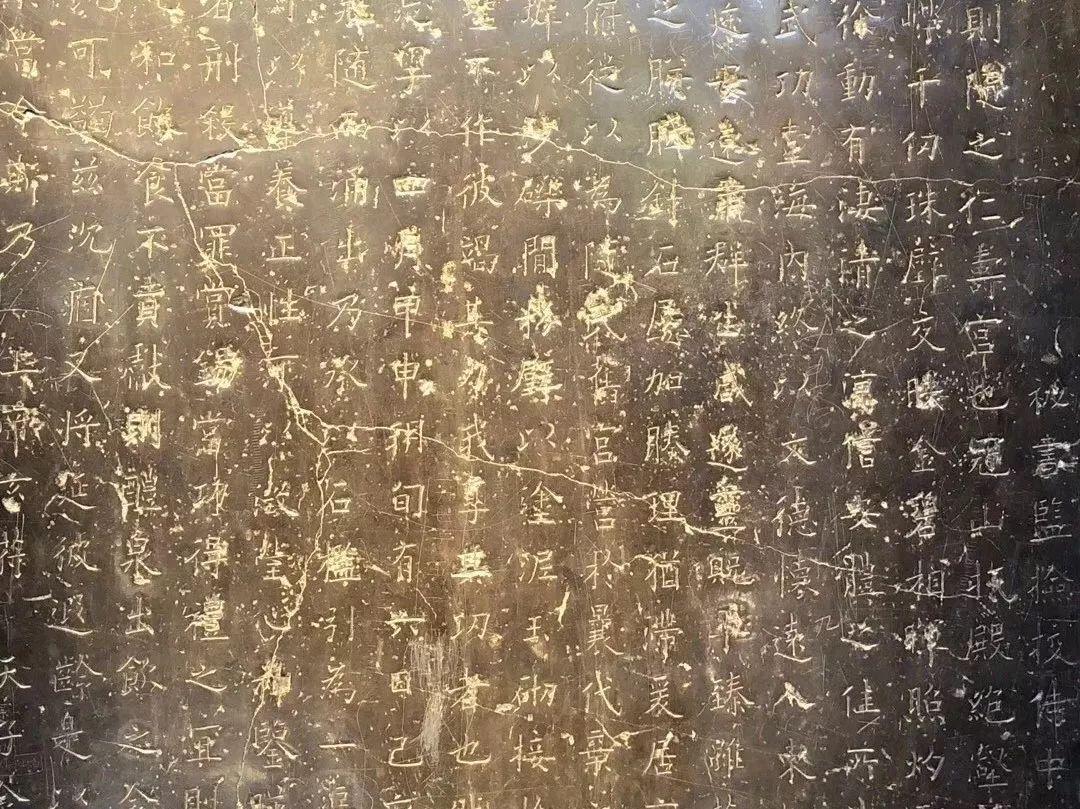 秘書監檢校侍中
則隨之仁壽宮也冠山抗殿絕壑
嶸千仞珠壁交暎金碧相暉照灼
徐動有淒清之涼信安體之佳所
武功壹海內終以文德懷遠人東
安遠肅群生咸遂靈貺畢臻雖
之胼胝針石屢加腠理猶滯爰居
俯從以為隨氏舊宮營於曩代棄
墀以沙礫間粉壁以塗泥玉砌接
聖不作彼竭其力我享其功者也
粵以四月甲申朔旬有六日己
隨而涌出乃承以石檻引為一沼
可以導養正性可以澂瑩心神鑒
刑殺當罪賞錫當功得禮之宜則
和飲食不貢獻則醴泉出飲之令
可蠲茲沉痼又將延彼遐齡是以
當今斯乃上帝玄符天子令